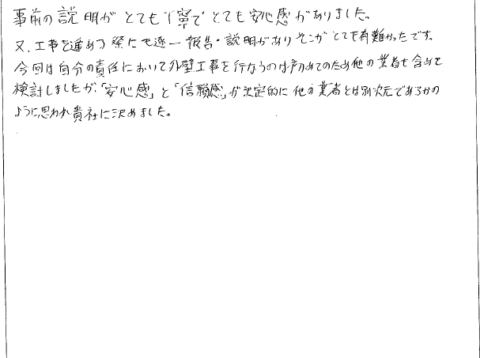 事前の説明がとても丁寧でとても安心感がありました。
又、工事を進める際にも逐一報告・説明がありそこがとても有難かったです。
今回は自分の責任において外壁工事を行なうのは初めてのため他の業者も含めて
検討しましたが、「安心感」と「信頼感」が決定的に他の業者とは別次元であるかの
ように思われ貴社に決めました。